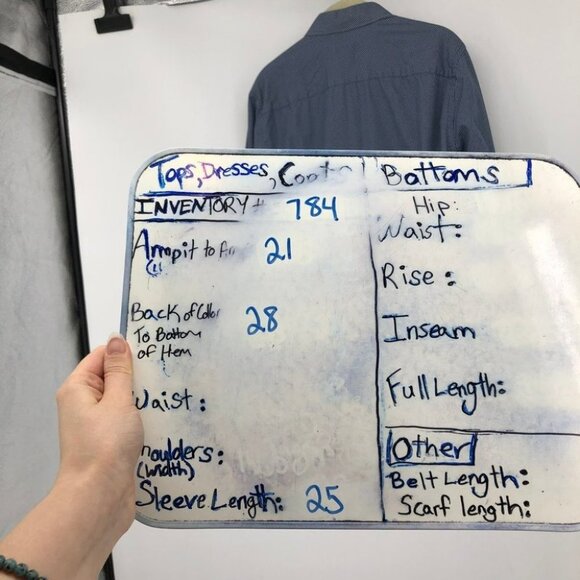 Tops, Dresses, Coats
INVENTORY # 784
Armpit to Ar 21
Back of Collar 28
To Bottom
of Hem
Waist:
Shoulders:
(width)
Sleeve Length: 25
Bottoms
Hip:
Waist:
Rise:
Inseam
Full Length:
Other
Belt Length:
Scarf length: